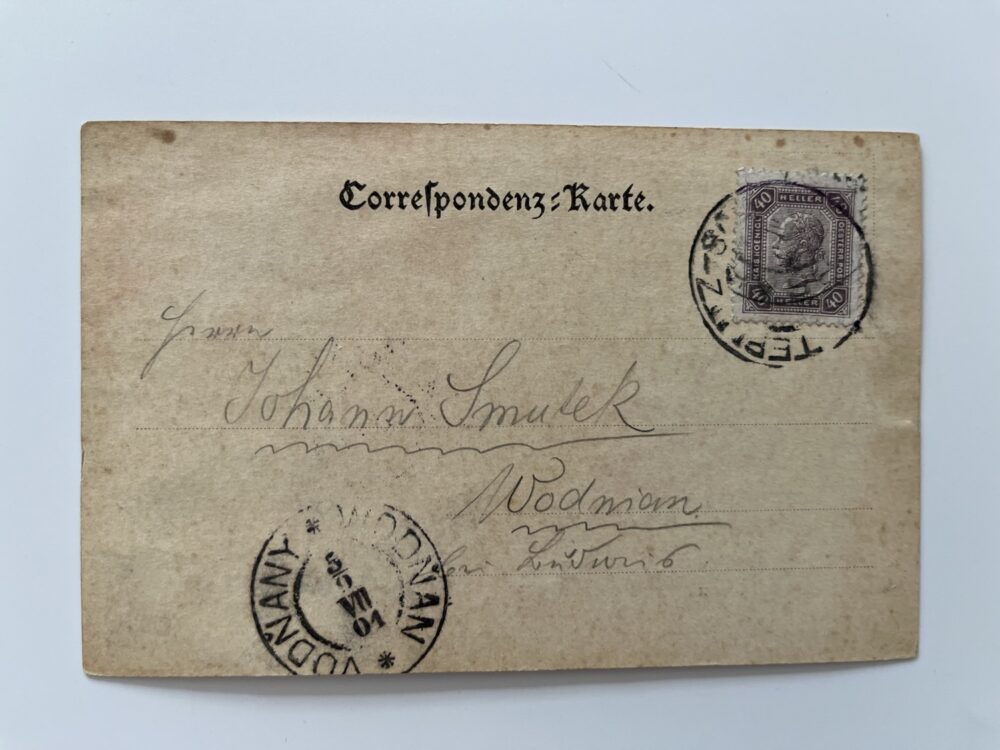 Correſpondenz-Karte.
40 HELLER 40
40 HELLER 40
TEPLITZ-SC
Herrn
Johann Smutek
Wodnian
bei Budweis
WODŇAN * VODŇANY *
VII
01